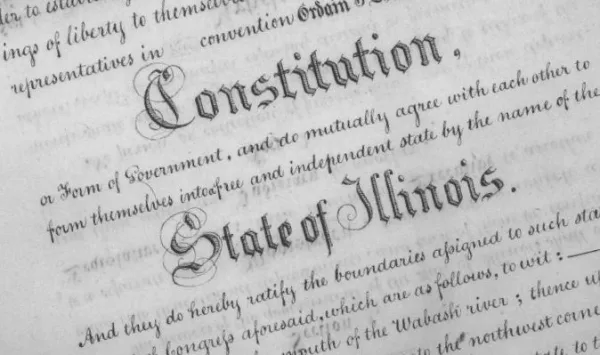 to establish
ings of liberty to themselve
representatives in convention Ordain
Constitution,
or Form of Government, and do mutually agree with each other to
form themselves into a free and independent state by the name of the
State of Illinois.
And they do hereby ratify the boundaries aſsigned to such sta
Congreſs aforesaid, which are as follows, to wit:
mouth of the Wabash river; thence u
to the northwest corne
state to t